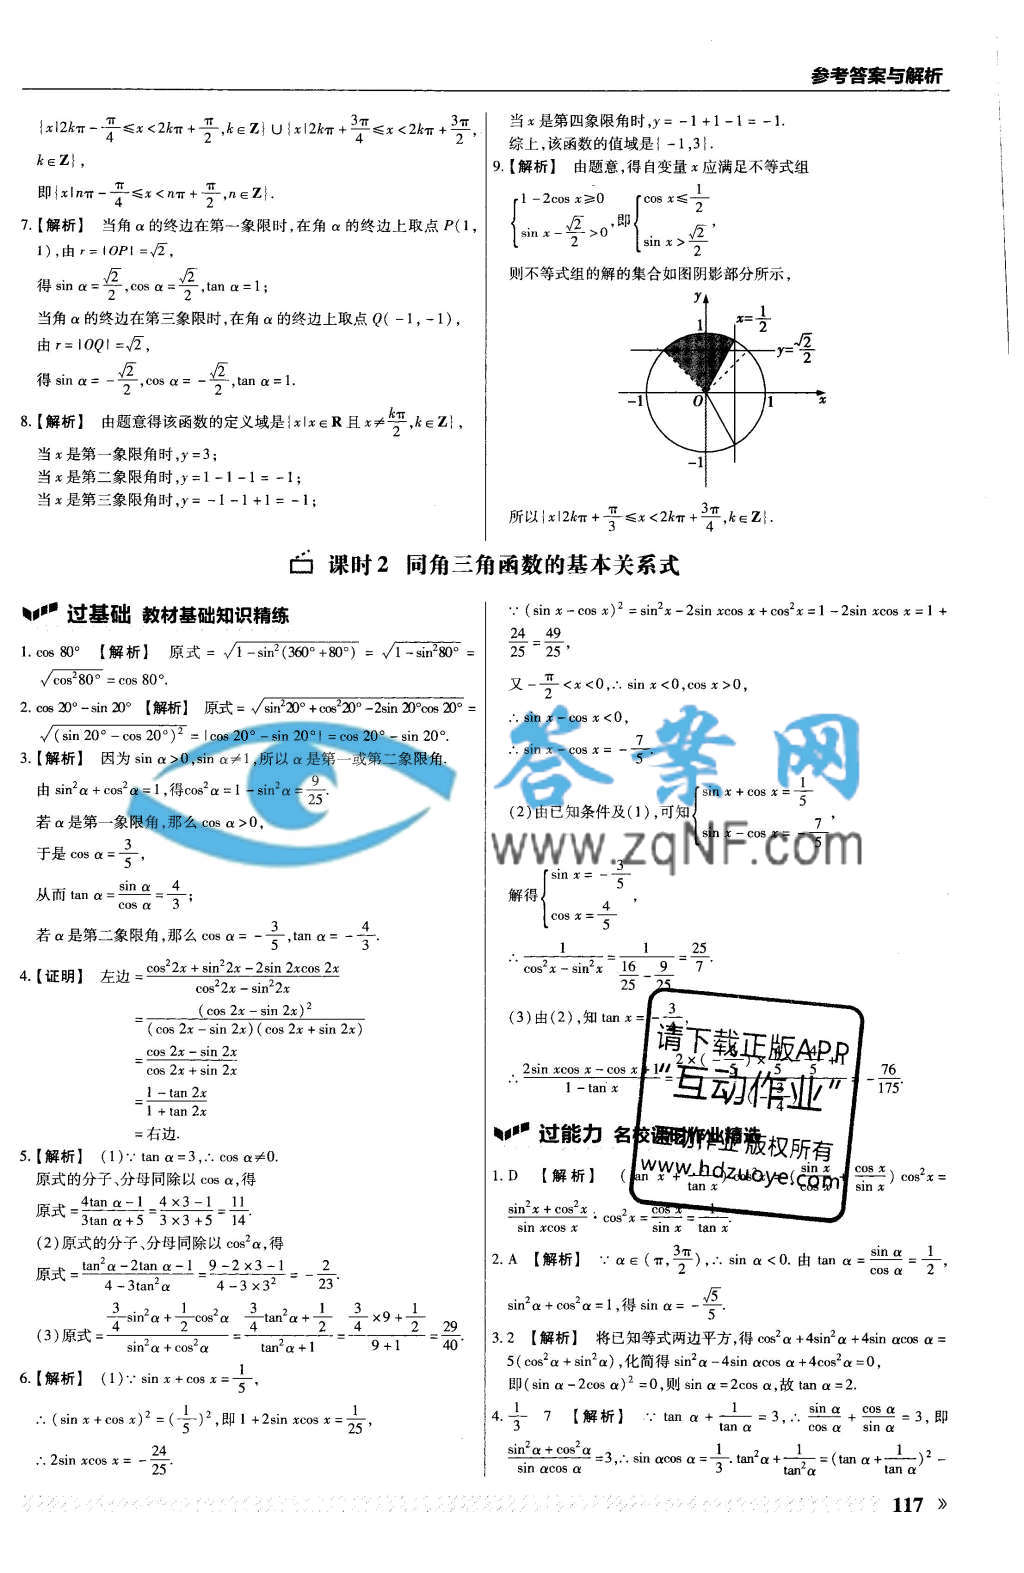 参考答案与解析
{x|2kπ-π/4≤x<2kπ+π/2,k∈Z}∪{x|2kπ+3π/4≤x<2kπ+3π/2,
k∈Z},
即{x|nπ-π/4≤x<nπ+π/2,n∈Z}.
7.【解析】 当角α的终边在第一象限时,在角α的终边上取点P(1,
1),由r=|OP|=√2,
得sin α=√2/2,cos α=√2/2,tan α=1;
当角α的终边在第三象限时,在角α的终边上取点Q(-1,-1),
由r=|OQ|=√2,
得sin α=-√2/2,cos α=-√2/2,tan α=1.
8.【解析】 由题意得该函数的定义域是{x|x∈R且x≠kπ/2,k∈Z},
当x是第一象限角时,y=3;
当x是第二象限角时,y=1-1-1=-1;
当x是第三象限角时,y=-1-1+1=-1;
当x是第四象限角时,y=-1+1-1=-1.
综上,该函数的值域是{-1,3}.
9.【解析】 由题意,得自变量x应满足不等式组
{1-2cos x≥0, sin x-√2/2>0, 即{cos x≤1/2, sin x>√2/2,
则不等式组的解的集合如图阴影部分所示,
y
1
x=1/2
y=√2/2
-1
O
1
x
-1
所以{x|2kπ+π/3≤x<2kπ+3π/4,k∈Z}.
课时2 同角三角函数的基本关系式
过基础 教材基础知识精练
1. cos 80° 【解析】 原式=√(1-sin²(360°+80°))=√(1-sin²80°)=
√(cos²80°)=cos 80°.
2. cos 20°-sin 20° 【解析】 原式=√(sin²20°+cos²20°-2sin 20°cos 20°)=
√((sin 20°-cos 20°)²)=|cos 20°-sin 20°|=cos 20°-sin 20°.
3.【解析】 因为sin α>0,sin α≠1,所以α是第一或第二象限角.
由sin²α+cos²α=1,得cos²α=1-sin²α=9/25.
若α是第一象限角,那么cos α>0,
于是cos α=3/5,
从而tan α=sin α/cos α=4/3;
若α是第二象限角,那么cos α=-3/5,tan α=-4/3.
4.【证明】 左边=(cos²2x+sin²2x-2sin 2xcos 2x)/(cos²2x-sin²2x)
=(cos 2x-sin 2x)²/((cos 2x-sin 2x)(cos 2x+sin 2x))
=(cos 2x-sin 2x)/(cos 2x+sin 2x)
=(1-tan 2x)/(1+tan 2x)
=右边.
5.【解析】 (1)∵tan α=3,∴cos α≠0.
原式的分子、分母同除以cos α,得
原式=(4tan α-1)/(3tan α+5)=(4×3-1)/(3×3+5)=11/14.
(2)原式的分子、分母同除以cos²α,得
原式=(tan²α-2tan α-1)/(4-3tan²α)=(9-2×3-1)/(4-3×3²)=-2/23.
(3)原式=(3/4sin²α+1/2cos²α)/(sin²α+cos²α)=(3/4tan²α+1/2)/(tan²α+1)=(3/4×9+1/2)/(9+1)=29/40.
6.【解析】 (1)∵sin x+cos x=1/5,
∴(sin x+cos x)²=(1/5)²,即1+2sin xcos x=1/25,
∴2sin xcos x=-24/25.
∵(sin x-cos x)²=sin²x-2sin xcos x+cos²x=1-2sin xcos x=1+
24/25=49/25,
又-π/2<x<0,∴sin x<0,cos x>0,
∴sin x-cos x<0,
∴sin x-cos x=-7/5.
(2)由已知条件及(1),可知{sin x+cos x=1/5, sin x-cos x=-7/5,
解得{sin x=-3/5, cos x=4/5,
∴1/(cos²x-sin²x)=1/(16/25-9/25)=25/7.
(3)由(2),知tan x=-3/4,
∴(2sin xcos x-cos x+1)/(1-tan x)= =-76/175.
答案网
www.zqNF.com
请下载正版APP
“互动作业”
互动作业版权所有
www.hdzuoye.com
过能力 名校课时作业精选
1. D 【解析】 (tan x+1/tan x)cos²x=(sin x/cos x+cos x/sin x)cos²x=
(sin²x+cos²x)/(sin xcos x)·cos²x=cos x/sin x=1/tan x.
2. A 【解析】 ∵α∈(π,3π/2),∴sin α<0.由tan α=sin α/cos α=1/2,
sin²α+cos²α=1,得sin α=-√5/5.
3. 2 【解析】 将已知等式两边平方,得cos²α+4sin²α+4sin αcos α=
5(cos²α+sin²α),化简得sin²α-4sin αcos α+4cos²α=0,
即(sin α-2cos α)²=0,则sin α=2cos α,故tan α=2.
4. 1/3 7 【解析】 ∵tan α+1/tan α=3,∴sin α/cos α+cos α/sin α=3,即
(sin²α+cos²α)/(sin αcos α)=3,∴sin αcos α=1/3.tan²α+1/tan²α=(tan α+1/tan α)²-
117